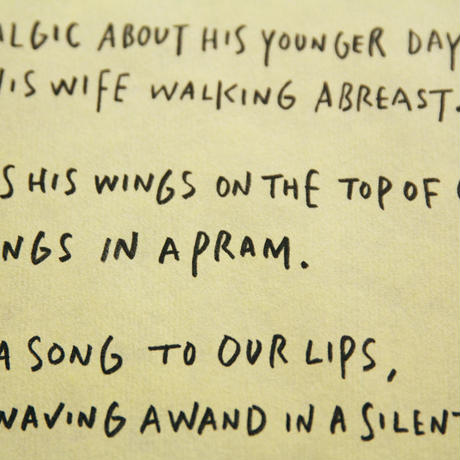 ALGIC ABOUT HIS YOUNGER DAY
HIS WIFE WALKING ABREAST.
S HIS WINGS ON THE TOP OF
NGS IN A PRAM.
A SONG TO OUR LIPS,
WAVING A WAND IN A SILENT